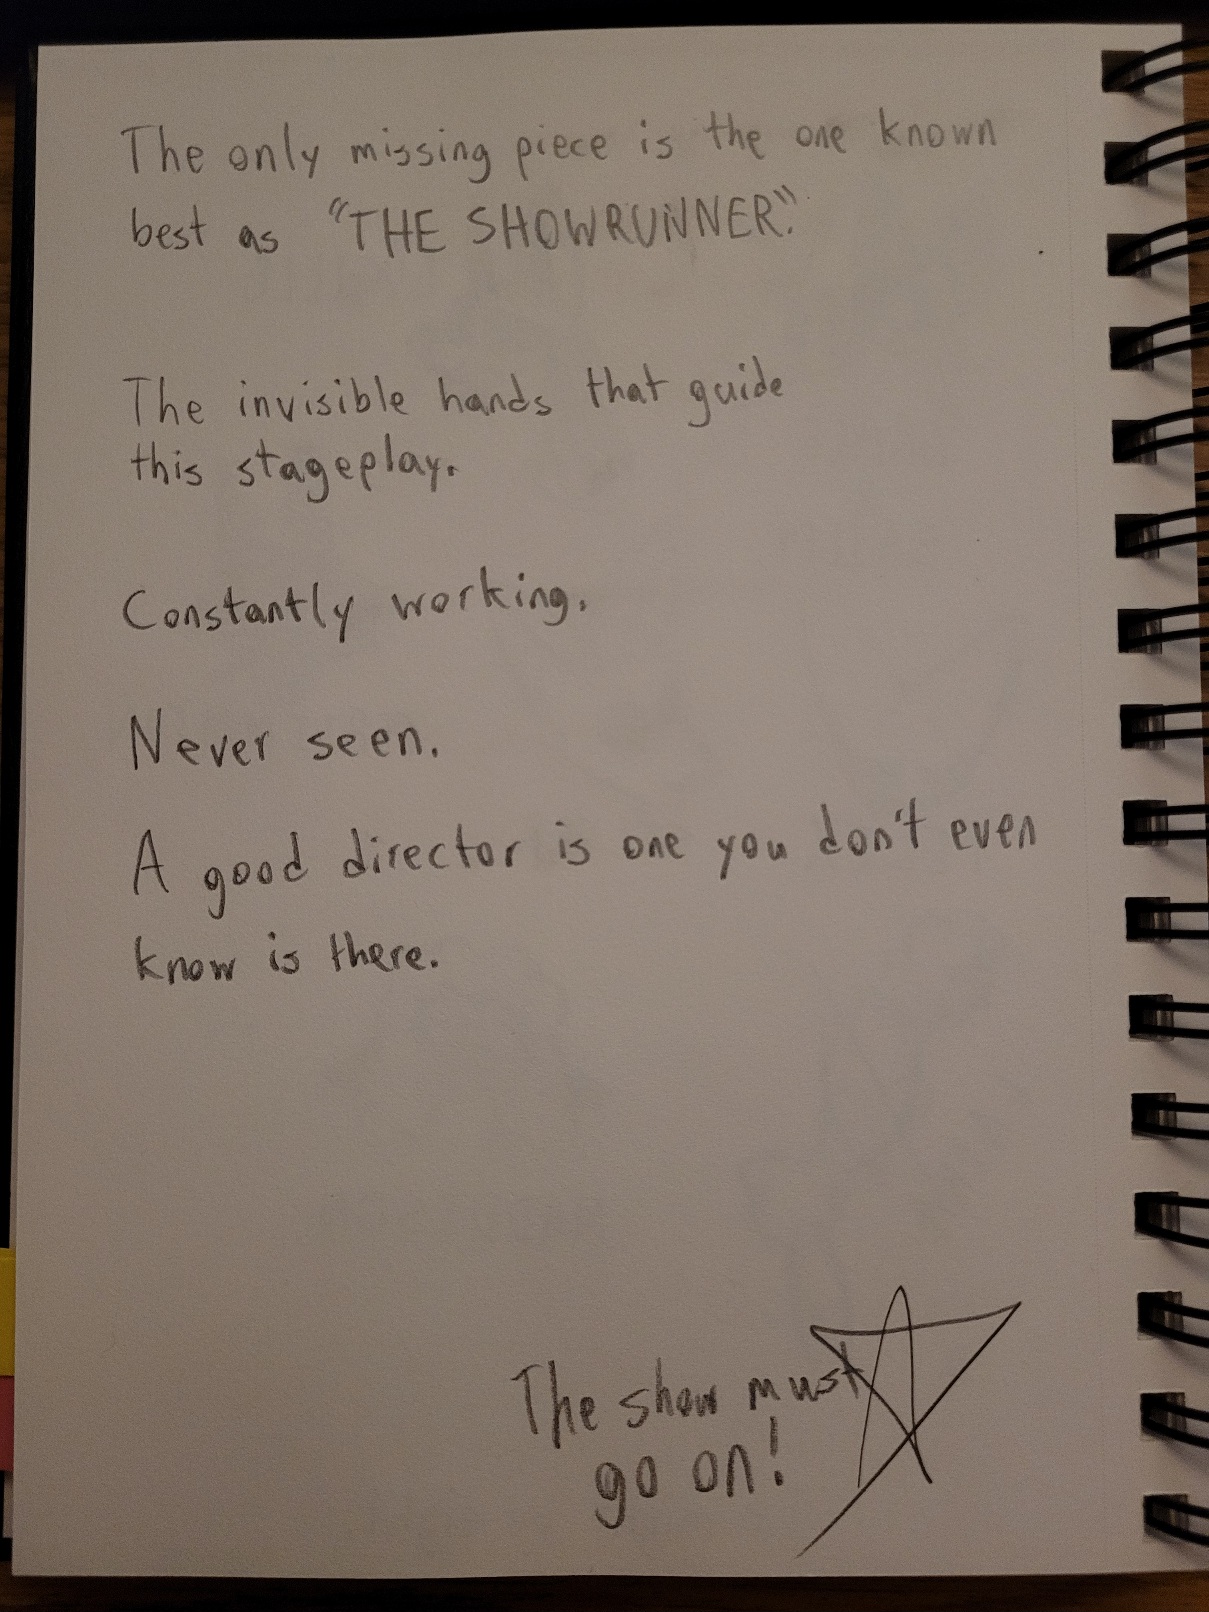 The only missing piece is the one known
best as "THE SHOWRUNNER".
The invisible hands that guide
this stageplay.
Constantly working.
Never seen.
A good director is one you don't even
know is there.
The show must
go on!